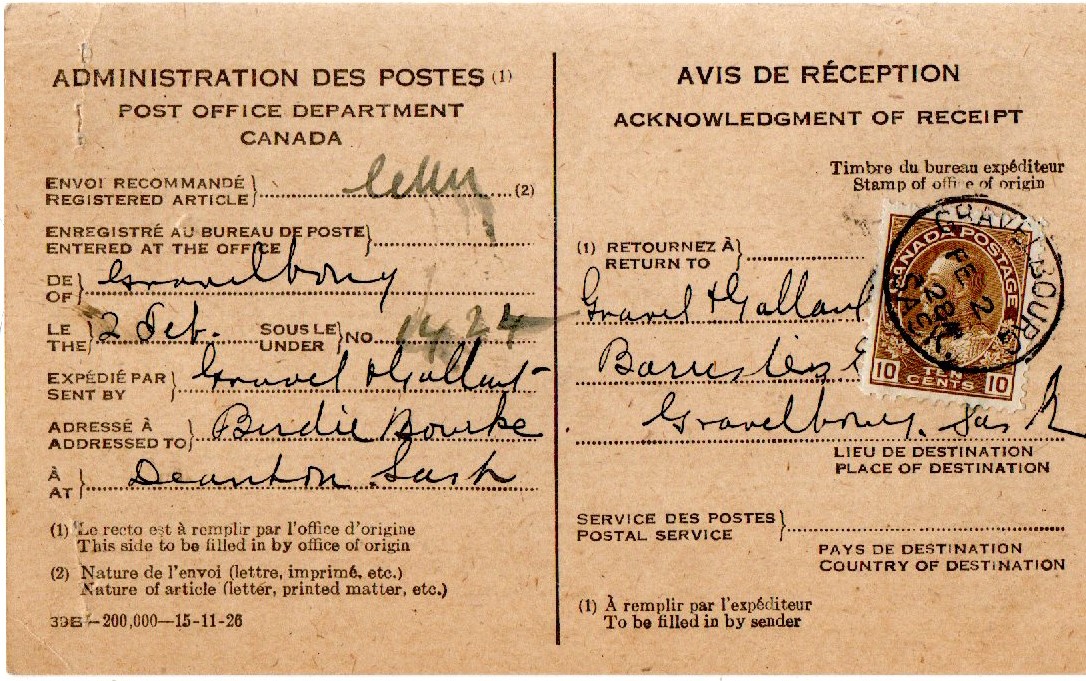 ADMINISTRATION DES POSTES (1)
POST OFFICE DEPARTMENT
CANADA
ENVOI RECOMMANDÉ
REGISTERED ARTICLE } letter (2)
ENREGISTRÉ AU BUREAU DE POSTE
ENTERED AT THE OFFICE }
DE
OF } Gravelbourg
LE
THE } 2 Feb. SOUS LE
UNDER } NO 1424
EXPÉDIÉ PAR
SENT BY } Gravel & Gallant
ADRESSÉ À
ADDRESSED TO } Birdie Bourke
À
AT } Sask
(1) Le recto est à remplir par l'office d'origine
This side to be filled in by office of origin
(2) Nature de l'envoi (lettre, imprimé, etc.)
Nature of article (letter, printed matter, etc.)
39B—200,000—15-11-26
AVIS DE RÉCEPTION
ACKNOWLEDGMENT OF RECEIPT
Timbre du bureau expéditeur
Stamp of office of origin
(1) RETOURNEZ À
RETURN TO }
Gravel & Gallant
Barristers
Gravelbourg, Sask
CANADA POSTAGE
10 TEN CENTS 10
GRAVELBOURG
FE 2
28
SASK.
LIEU DE DESTINATION
PLACE OF DESTINATION
SERVICE DES POSTES
POSTAL SERVICE }
PAYS DE DESTINATION
COUNTRY OF DESTINATION
(1) À remplir par l'expéditeur
To be filled in by sender